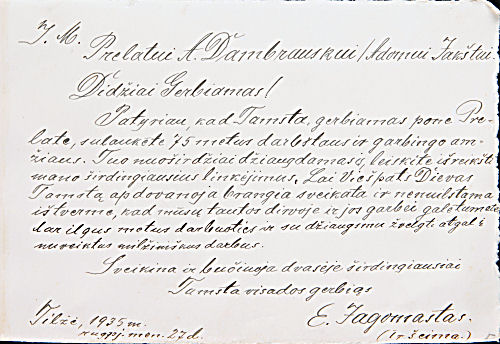 J. M.
Prelatui A. Dambrauskui / Adomui Jakštui.
Didžiai Gerbiamas!
Patyriau, kad Tamsta, gerbiamas pone Pre-
late, sulaukėte 75 metus darbštaus ir garbingo am-
žiaus. Tuo nuoširdžiai džiaugdamasis, leiskite išreikšti
mano širdingiausius linkėjimus. Lai Viešpats Dievas
Tamstą apdovanoja brangia sveikata ir nenulstama
ištverme, kad mūsų tautos dirvoje ir jos garbei galėtumėte
dar ilgus metus darbuoties ir su džiaugsmu žvelgti atgal į
nuveiktus milžiniškus darbus.
Sveikina ir bučiuoja dvasėje širdingiausiai
Tamsta visados gerbiąs
E. Jagomastas.
(ir šeima.)
Tilžė, 1935 m.
rugpj. mėn. 27 d.